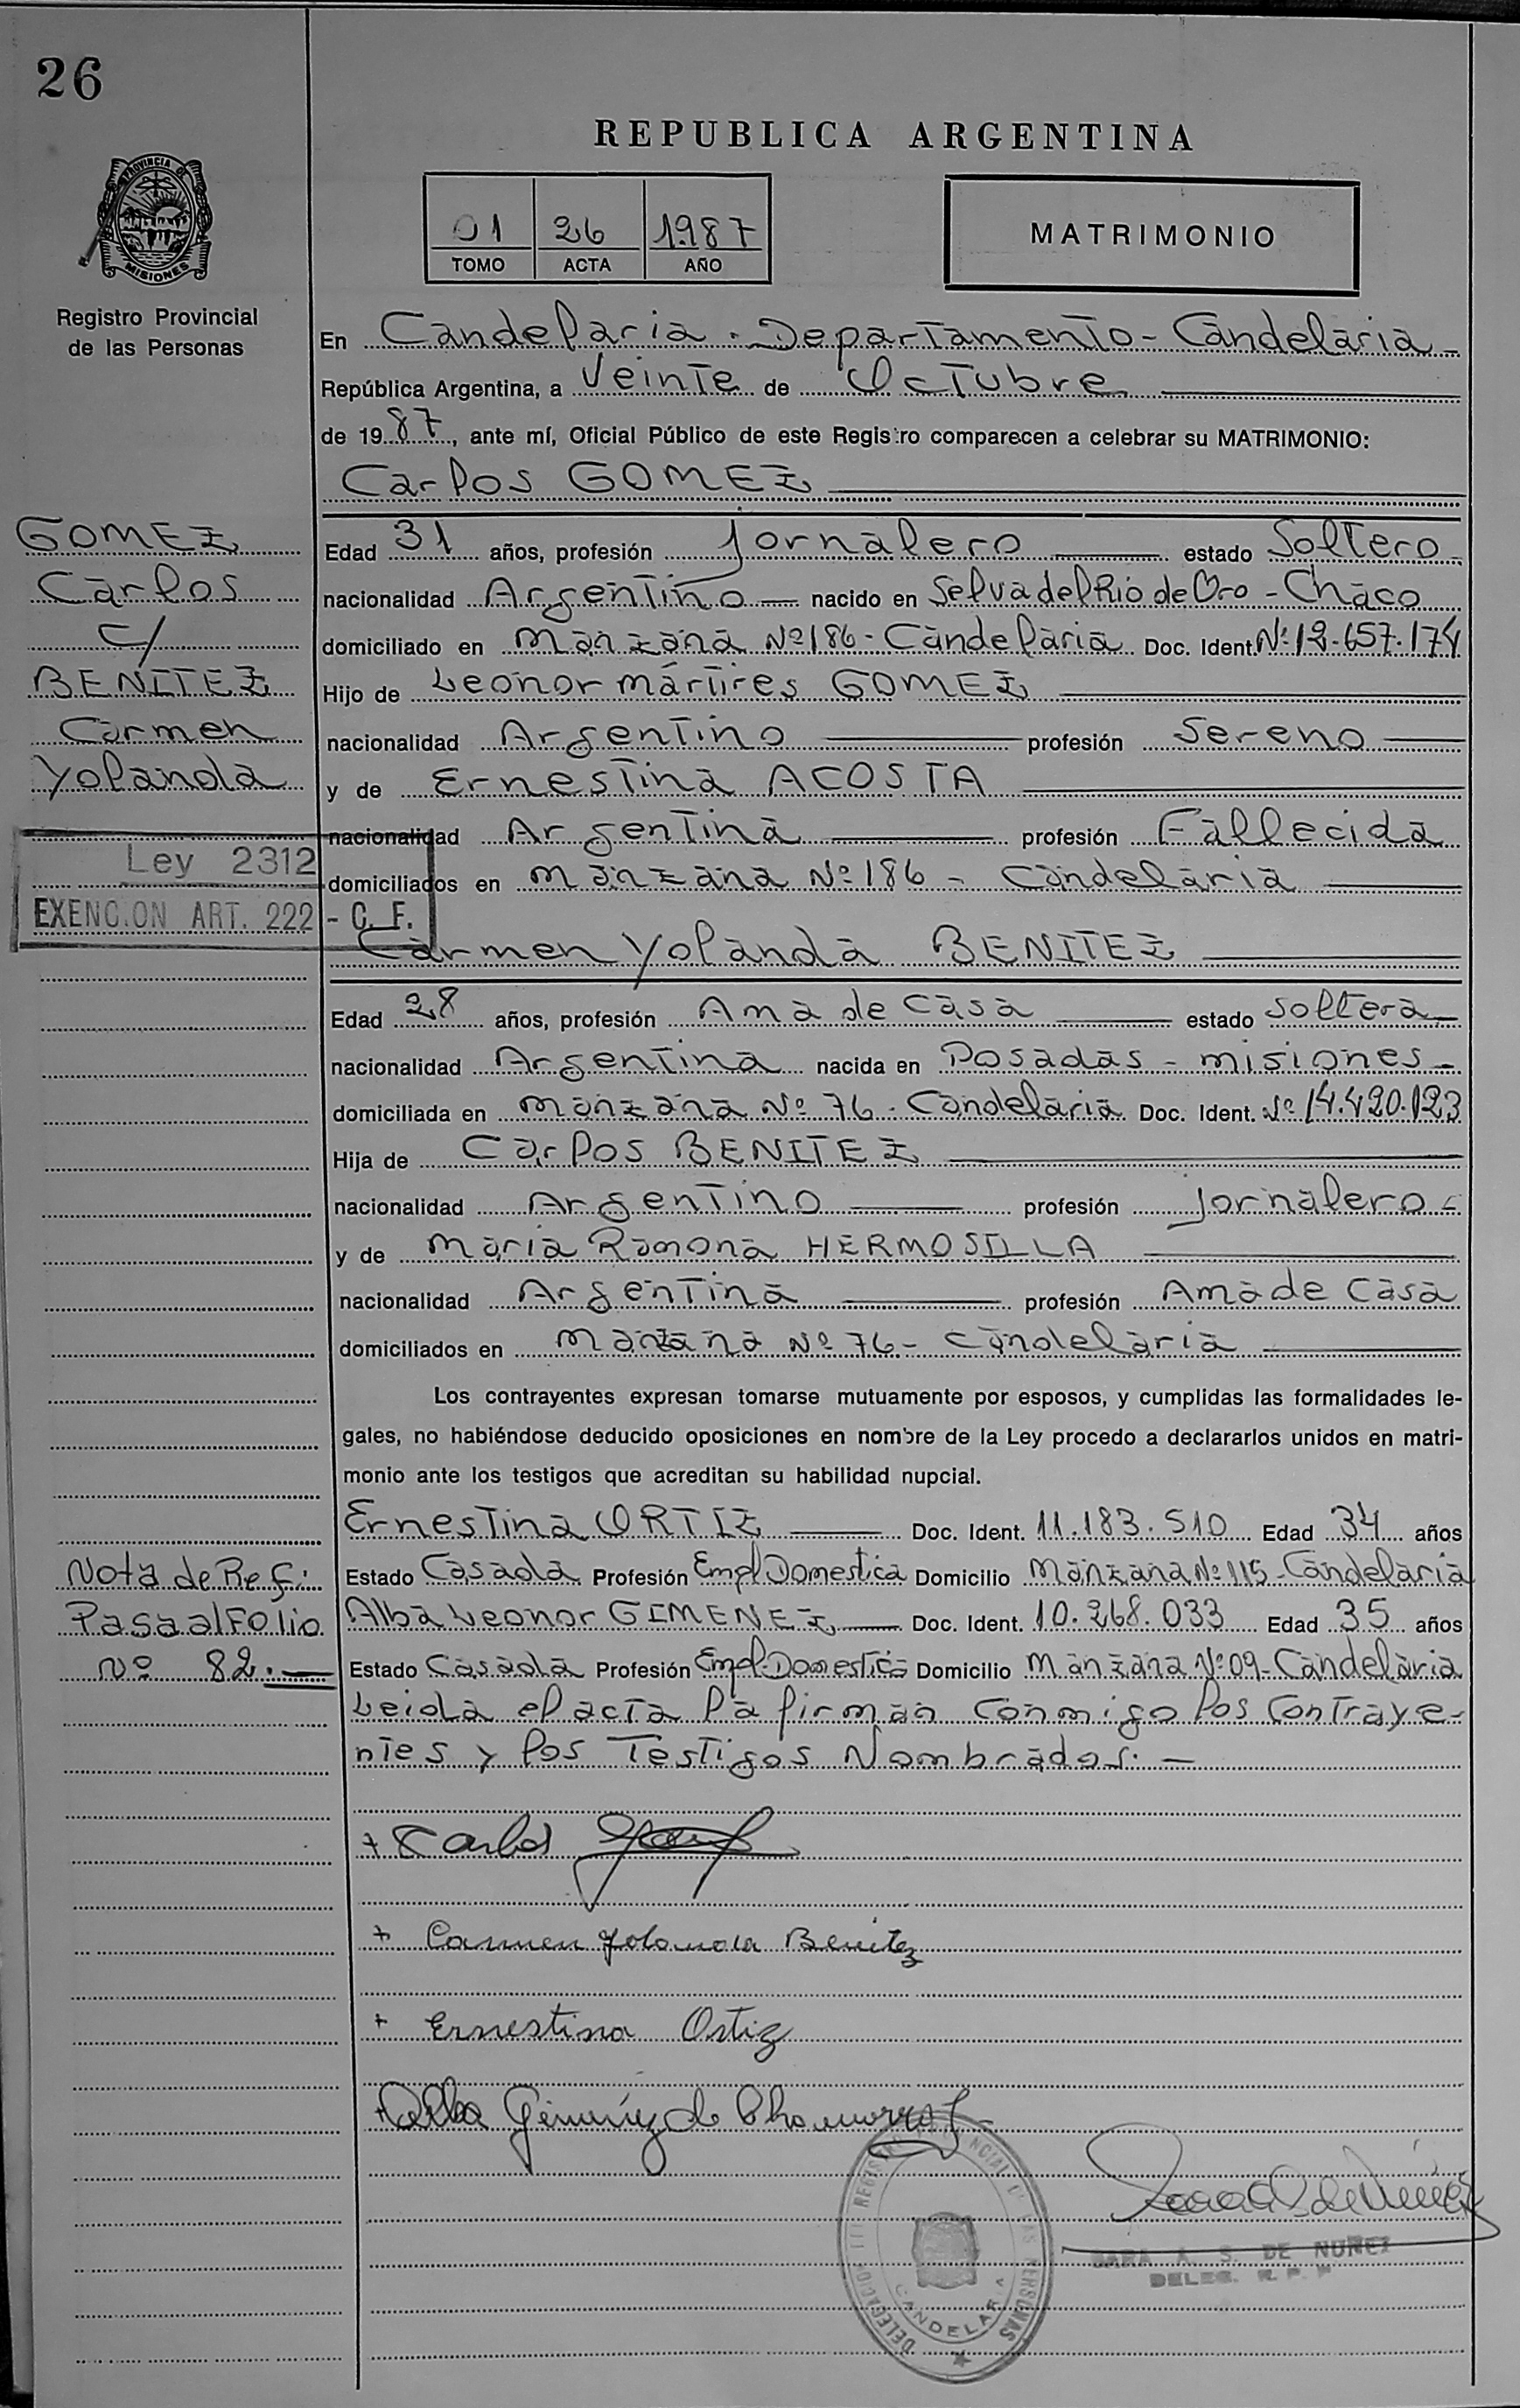 26
REPUBLICA ARGENTINA
PROVINCIA DE
MISIONES
Registro Provincial
de las Personas
01 26 1987
TOMO ACTA AÑO
MATRIMONIO
En Candelaria - Departamento - Candelaria -
República Argentina, a Veinte de Octubre
de 1987, ante mí, Oficial Público de este Registro comparecen a celebrar su MATRIMONIO:
Carlos GOMEZ
GOMEZ
Carlos
c/
BENITEZ
Carmen
Yolanda
Edad 31 años, profesión jornalero estado Soltero
nacionalidad Argentino nacido en Selva del Rio de Oro - Chaco
domiciliado en manzana Nº 186 - Candelaria Doc. Ident. Nº 12.657.174
Hijo de Leonor mártires GOMEZ
nacionalidad Argentino profesión Sereno
y de Ernestina ACOSTA
nacionalidad Argentina profesión Fallecida
domiciliados en manzana Nº 186 - Candelaria
Ley 2312
EXENCION ART. 222 - C. F.
Carmen Yolanda BENITEZ
Edad 28 años, profesión Ama de Casa estado soltera
nacionalidad Argentina nacida en Posadas - misiones -
domiciliada en manzana Nº 76 - Candelaria Doc. Ident. Nº 14.420.123
Hija de Carlos BENITEZ
nacionalidad Argentino profesión jornalero -
y de maria Ramona HERMOSILLA
nacionalidad Argentina profesión Ama de Casa
domiciliados en manzana Nº 76 - Candelaria
Los contrayentes expresan tomarse mutuamente por esposos, y cumplidas las formalidades le-
gales, no habiéndose deducido oposiciones en nombre de la Ley procedo a declararlos unidos en matri-
monio ante los testigos que acreditan su habilidad nupcial.
Ernestina ORTIZ Doc. Ident. 11.183.510 Edad 34 años
Estado Casada Profesión Empl. Domestica Domicilio Manzana Nº 115 - Candelaria
Alba Leonor GIMENEZ Doc. Ident. 10.268.033 Edad 35 años
Estado Casada Profesión Empl. Domestica Domicilio manzana Nº 09 - Candelaria
Nota de Ref:
Pasa al Folio
Nº 82.-
Leida el acta la firman conmigo los Contraye-
ntes y los Testigos Nombrados. -
+ Carlos
+ Carmen Yolanda Benitez
+ Ernestina Ortiz
+ Alba Giménez de Chamorro
DELEGACION DEL REGISTRO PROVINCIAL DE LAS PERSONAS
CANDELARIA
SARA A. S. DE NUÑEZ
DELEG. R. P. P